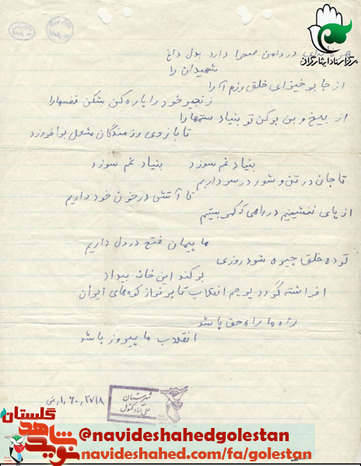 مرکز اسناد ایثارگران
در دامن صحرا دارد بدل داغ
شهیدان را
از جا برخیز ای خلق رزم آرا
زنجیر خود را پاره کن بشکن قفسها را
از بیخ و بن بر کن تو بنیاد ستمها را
تا بازوی رزمندگان مشعل برافروزد
بنیاد غم سوزد بنیاد غم سوزد
تا جان در تن و شور در سر داریم
تا آتشی در خون خود داریم
از پای ننشینیم در راهی که می بینیم
ما پیمان فتح در دل داریم
توده خلق چیره شود روزی
بر کند این خانه بیداد
افراشته گردد پرچم انقلاب ما بر فراز کوههای ایران
راه ما راه حق باشد
انقلاب ما پیروز باشد
شهرستان
علی آباد کتول
نوید شاهد گلستان
@navideshahedgolestan
navideshahed.com/fa/golestan